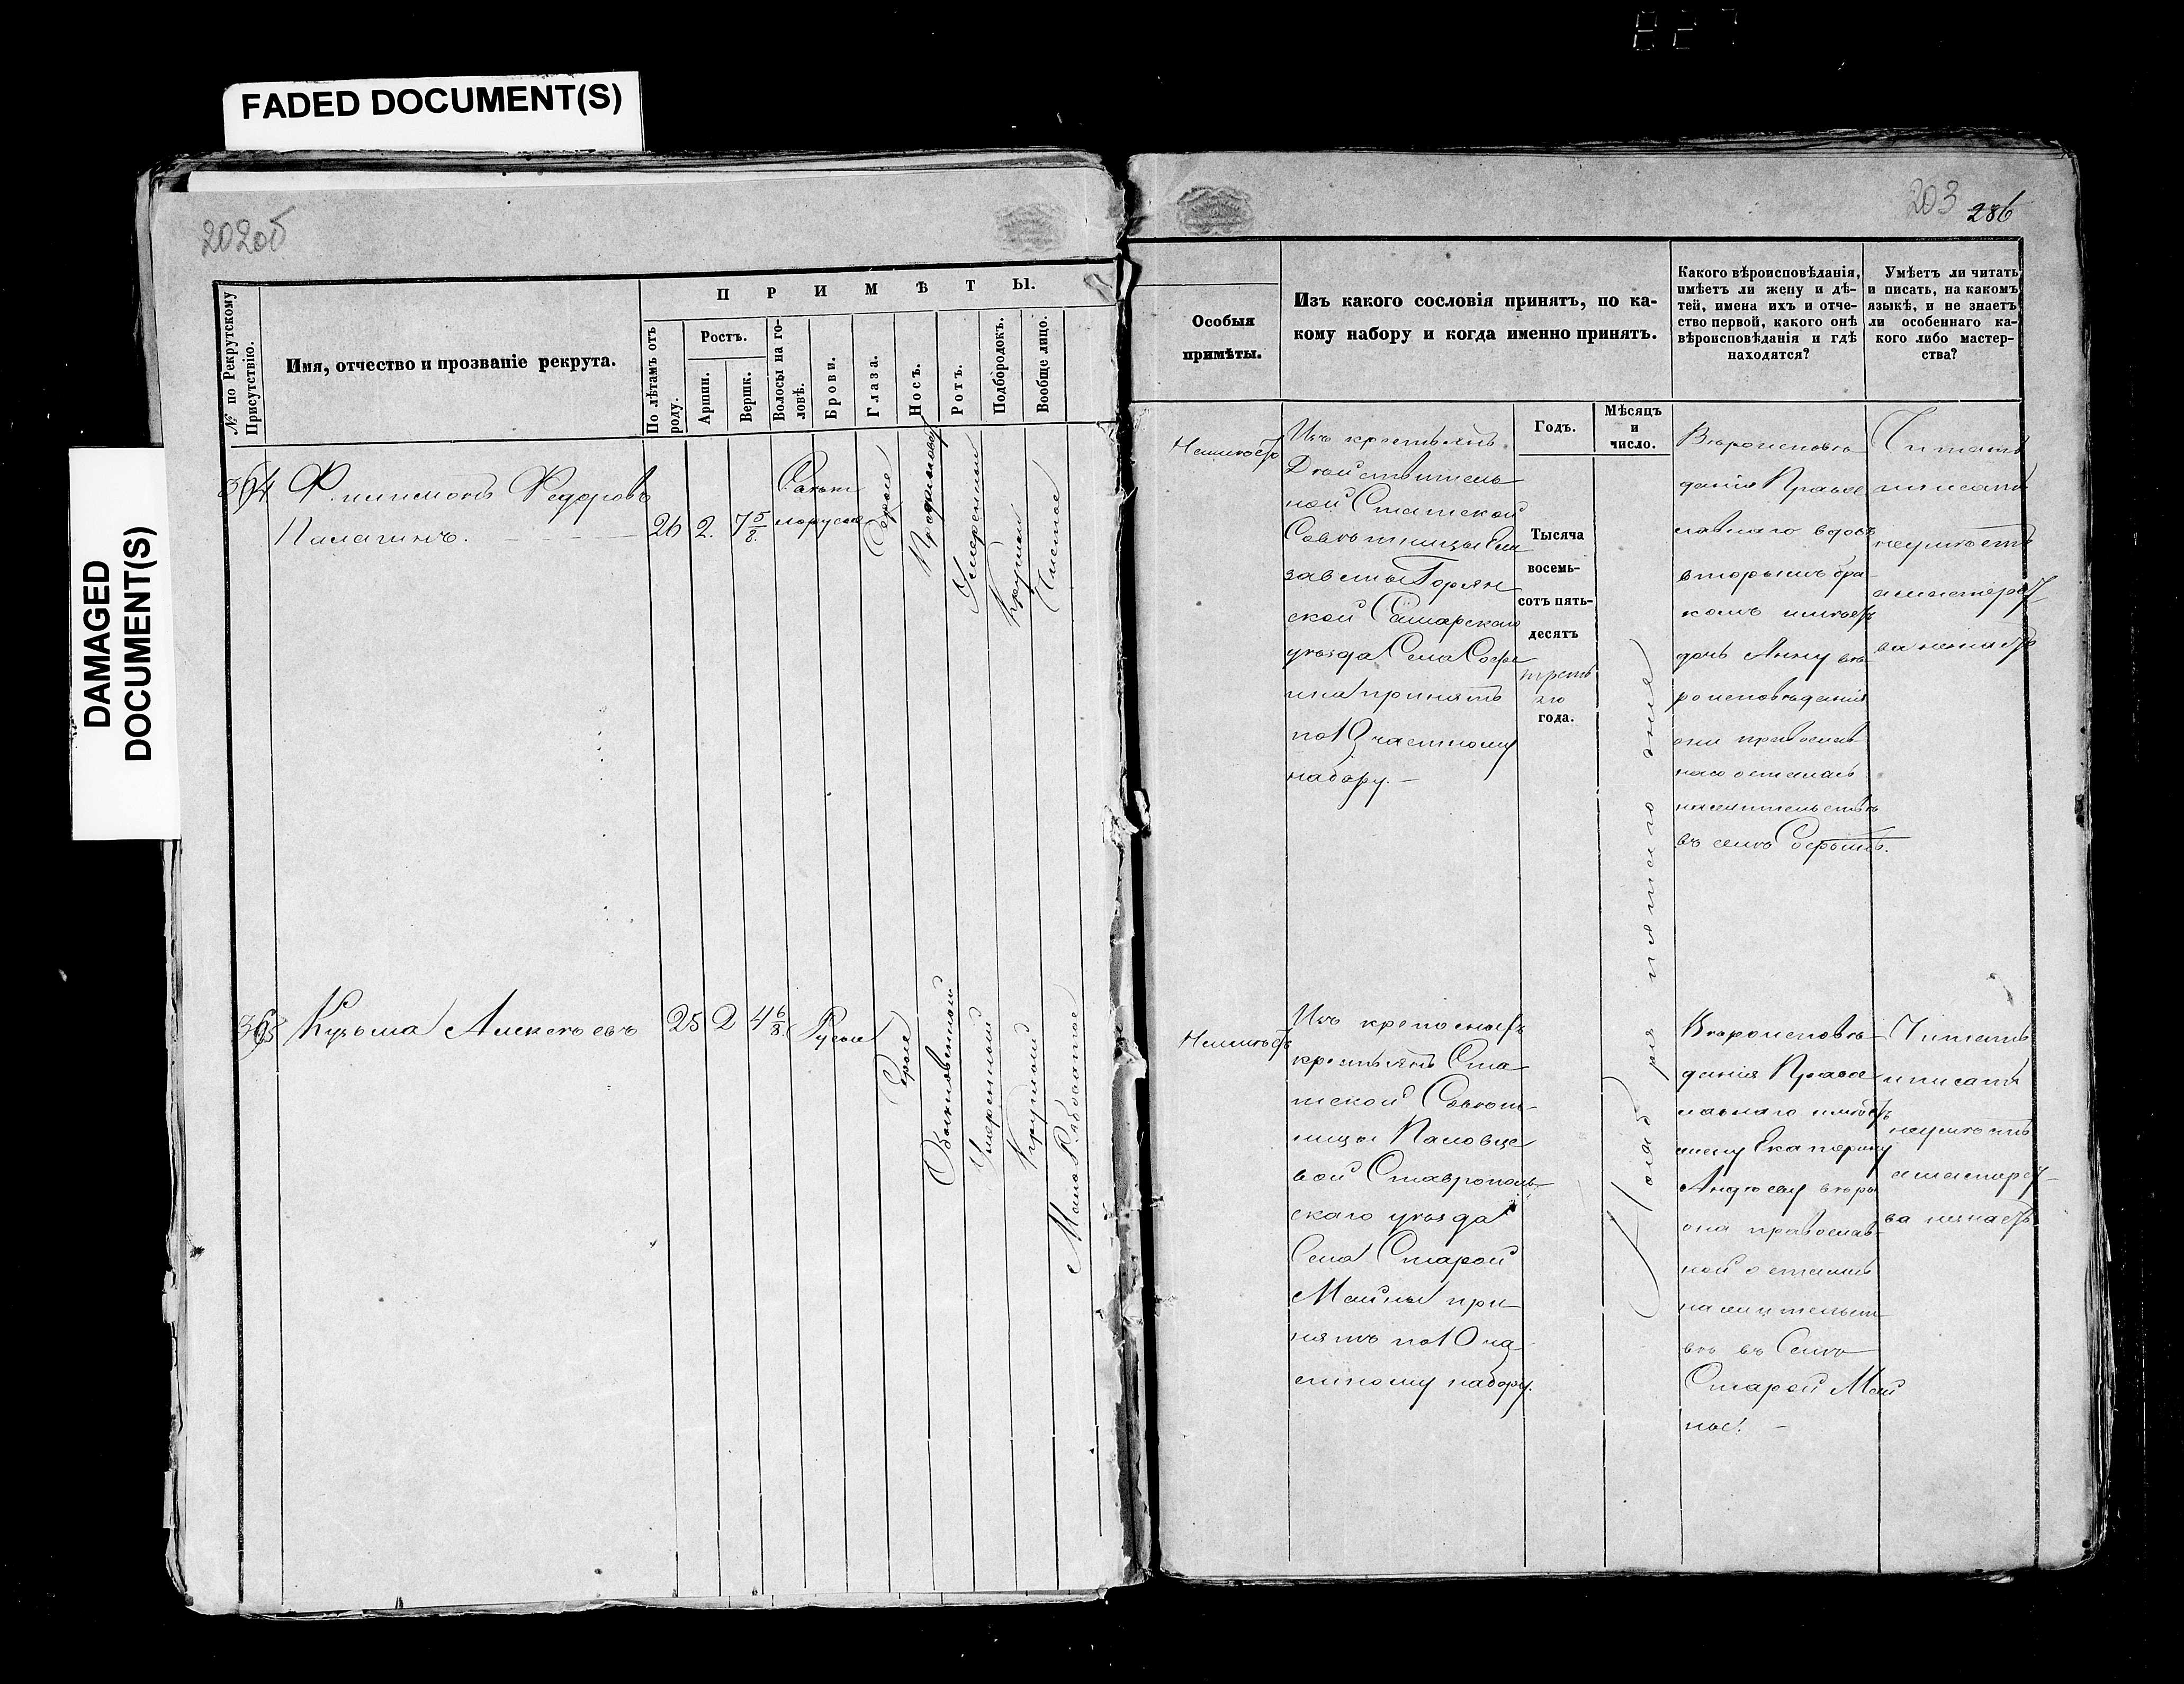 FADED DOCUMENT(S)
DAMAGED
DOCUMENT(S)
202об
203
286
№ по Рекрутскому
Присутствію.
Имя, отчество и прозваніе рекрута.
П Р И М Ѣ Т Ы.
По лѣтамъ отъ
роду.
Ростъ.
Аршин.
Вершк.
Волосы на го-
ловѣ.
Брови.
Глаза.
Носъ.
Ротъ.
Подбородокъ.
Вообще лицо.
364
Филимонъ Федоровъ
Палагинъ.
26
2.
7 5/8
Свѣтло
лорусые
Сѣрые
Умѣренный
Круглый
Чистое
365
Кузьма Алексѣевъ
25
2
4 6/8.
Русые
Сѣрые
Обыкновенный
Умѣренный
Круглый
Мало Рябоватое
Особыя
примѣты.
Изъ какого сословія принятъ, по ка-
кому набору и когда именно принятъ.
Какого вѣроисповѣданія,
имѣетъ ли жену и дѣ-
тей, имена ихъ и отче-
ство первой, какого онѣ
вѣроисповѣданія и гдѣ
находятся?
Умѣетъ ли читать
и писать, на какомъ
языкѣ, и не знаетъ
ли особеннаго ка-
кого либо мастер-
ства?
Годъ.
Мѣсяцъ
и
число.
Неимѣетъ
Изъ крестьянъ
Дѣйствитель
ной Статской
Совѣтницы Ели
заветы Горян
ской Самарскаго
уѣзда Села Софь
ина принятъ
по 10 частному
набору. —
Тысяча
восемь-
сотъ пять-
десятъ
треть
яго
года.
Ноября пятаго дня
Вѣроисповѣ-
данія Право
славнаго вдовъ
вторымъ бра-
комъ имѣетъ
дочь Анну вѣ-
роисповѣданія
они православ
наго осталась
нажительствѣ
въ селѣ Софьинѣ.
Читать
и писать
неумѣетъ
а мастерст-
ва незнаетъ
Неимѣетъ
Изъ крепосныхъ
крестьянъ Ста
тской Совѣт-
ницы Наковце
вой Ставрополь-
скаго уѣзда
Села Старой
Майны при-
нятъ по 10 ча
стному набору.
Вѣроисповѣ-
данія Право
славнаго имѣетъ
жену Екатерину
Андрѣеву вѣры
она православ-
ной осталась
на жительст
вѣ въ Селѣ
Старой Май
нѣ. —
Читать
и писать
неумѣетъ
а мастерст-
ва незнаетъ